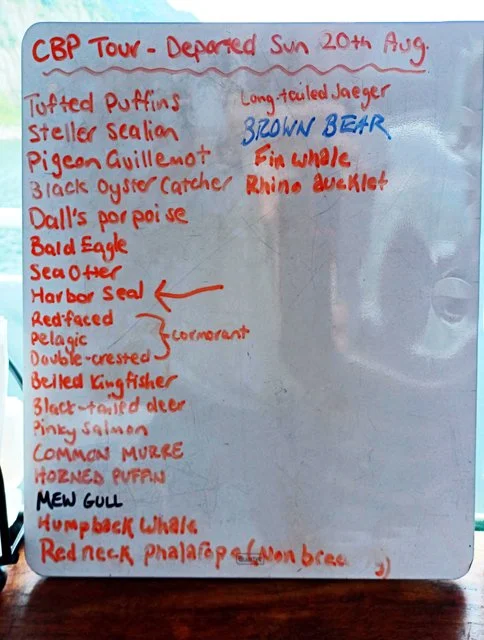 CBP Tour - Departed Sun 20th Aug.
Tufted Puffins
Steller Sealion
Pigeon Guillemot
Black Oyster Catcher
Dall's porpoise
Bald Eagle
Sea Otter
Harbor Seal
Red-faced
Pelagic
Double-crested
cormorant
Belled Kingfisher
Black-tailed deer
Pinky Salmon
COMMON MURRE
HORNED PUFFIN
MEW GULL
Humpback Whale
Red neck phalarope (Non
Long-tailed Jaeger
BROWN BEAR
Fin whale
Rhino Aucklet